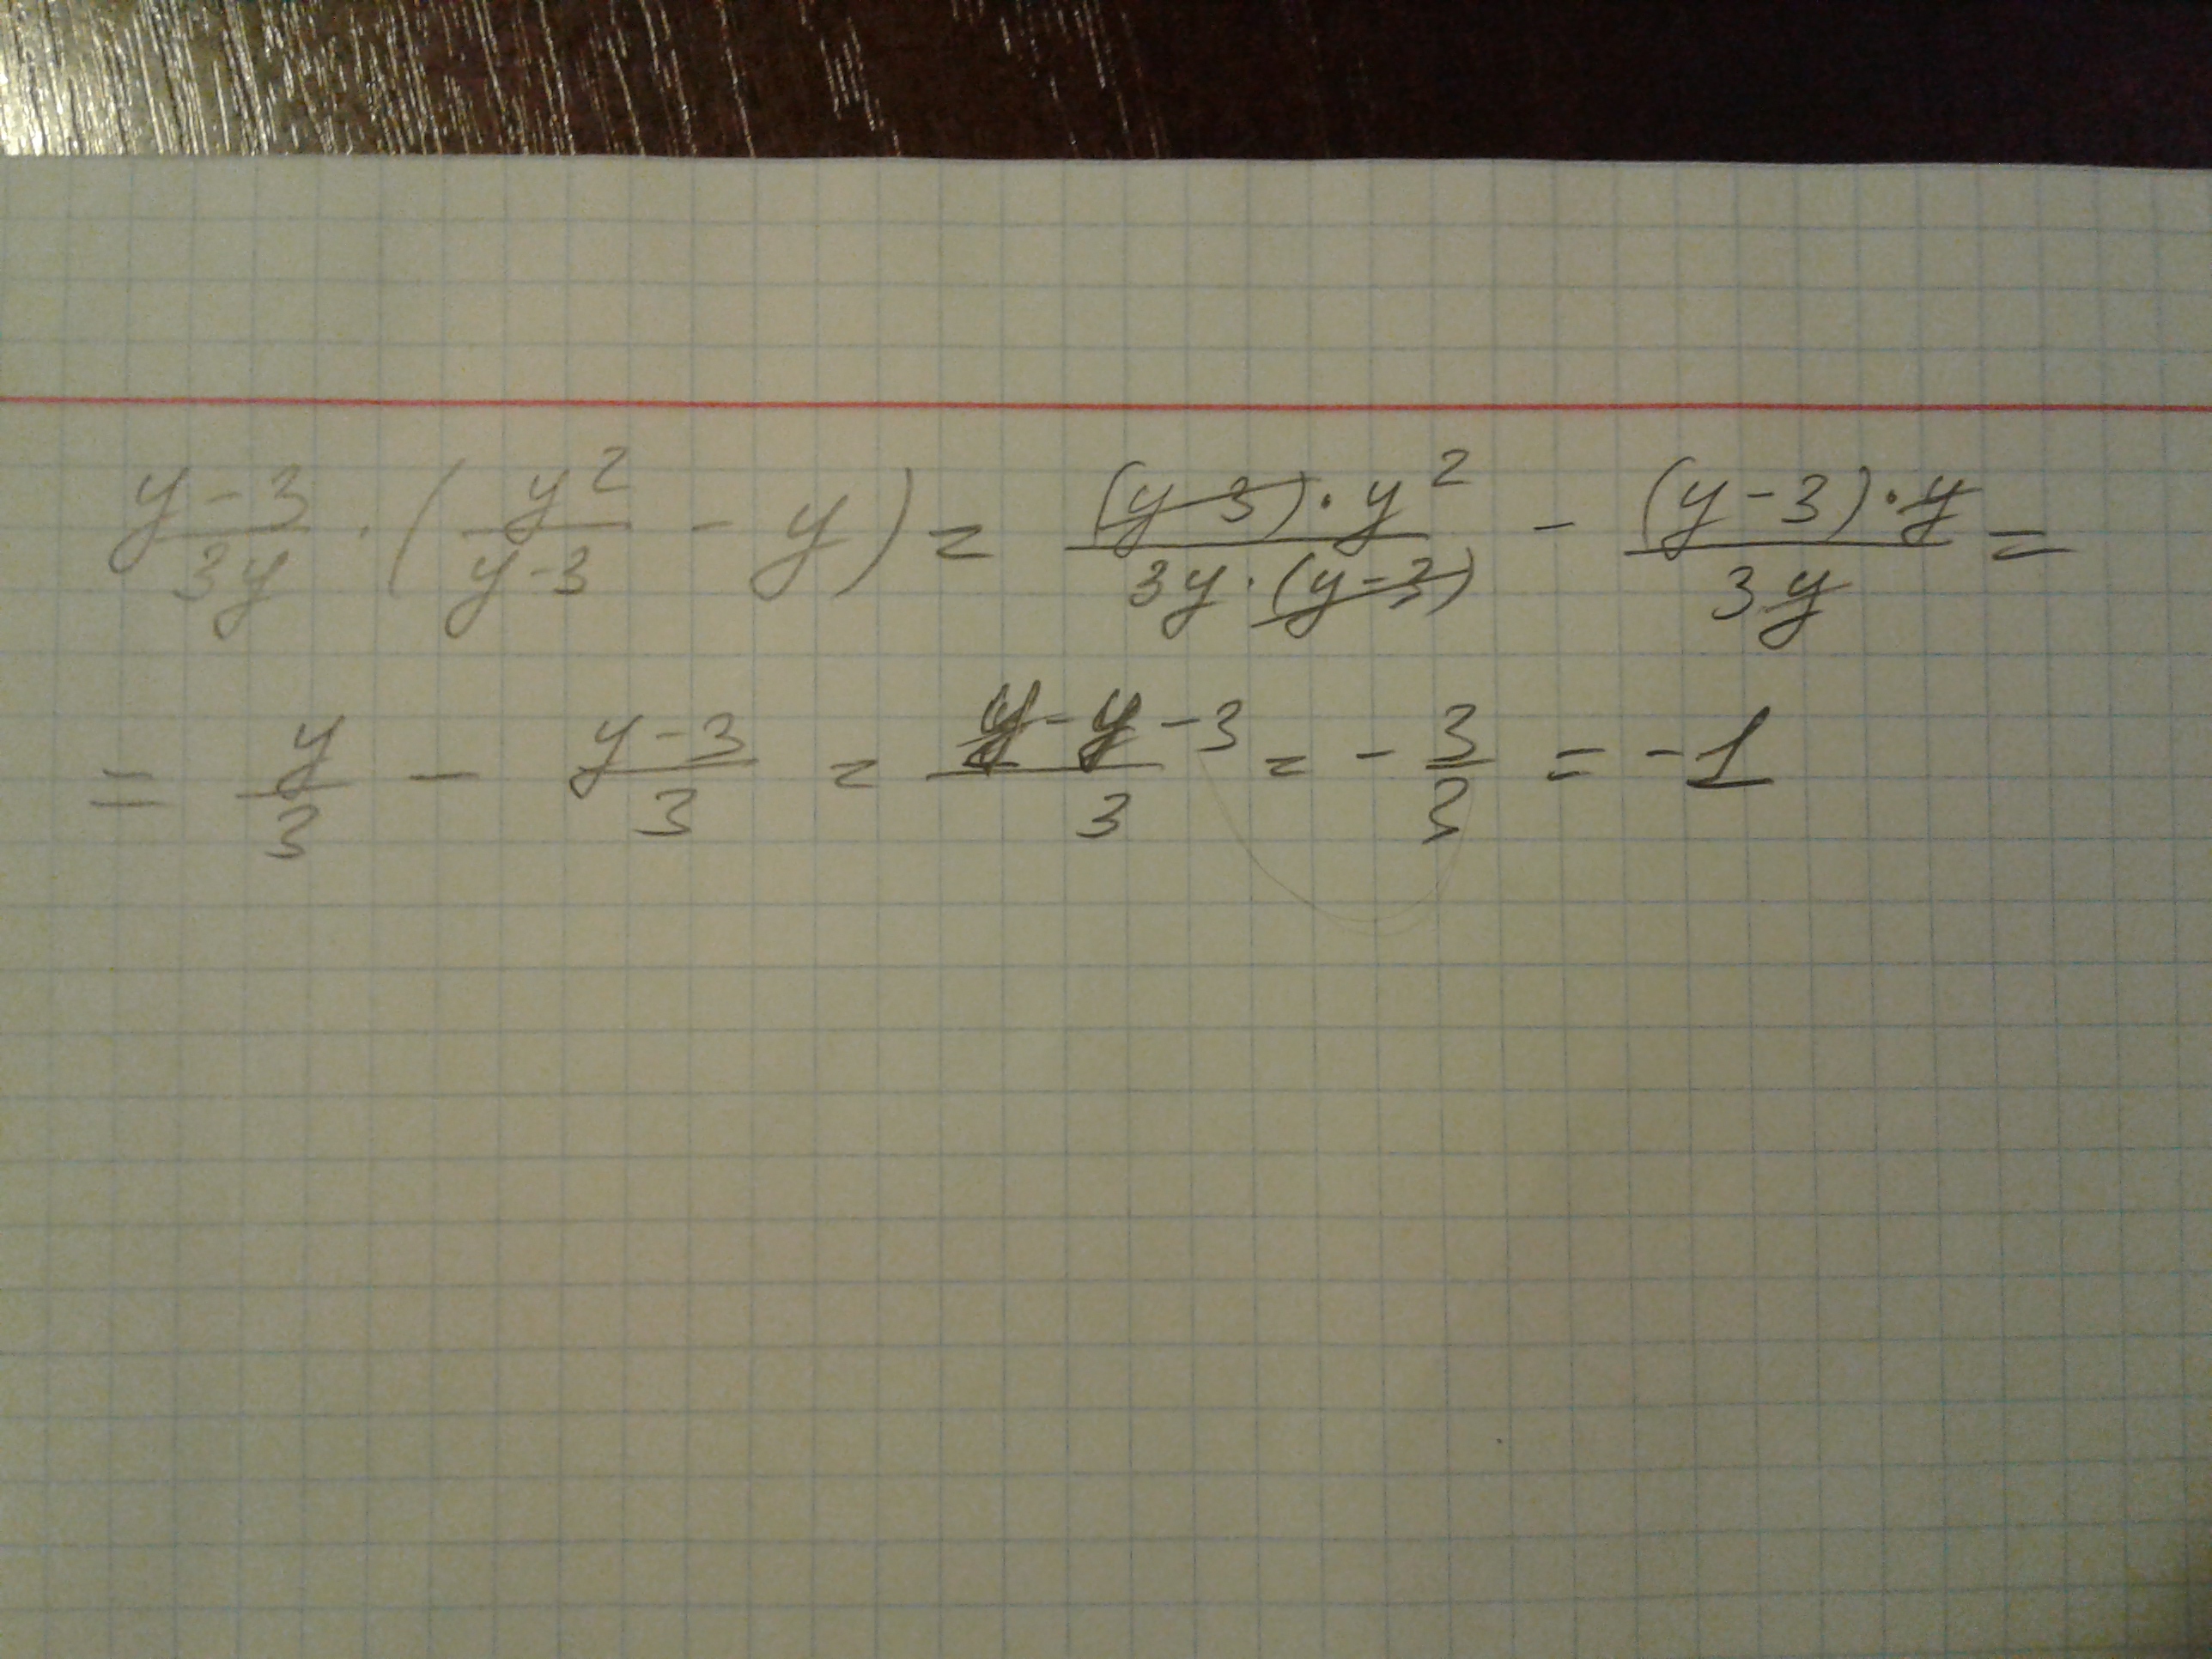 (y-3)/(3y) · (y²/(y-3) - y) = ((y-3)·y²)/(3y·(y-3)) - ((y-3)·y)/(3y) =
= y/3 - (y-3)/3 = (y-y-3)/3 = -3/3 = -1